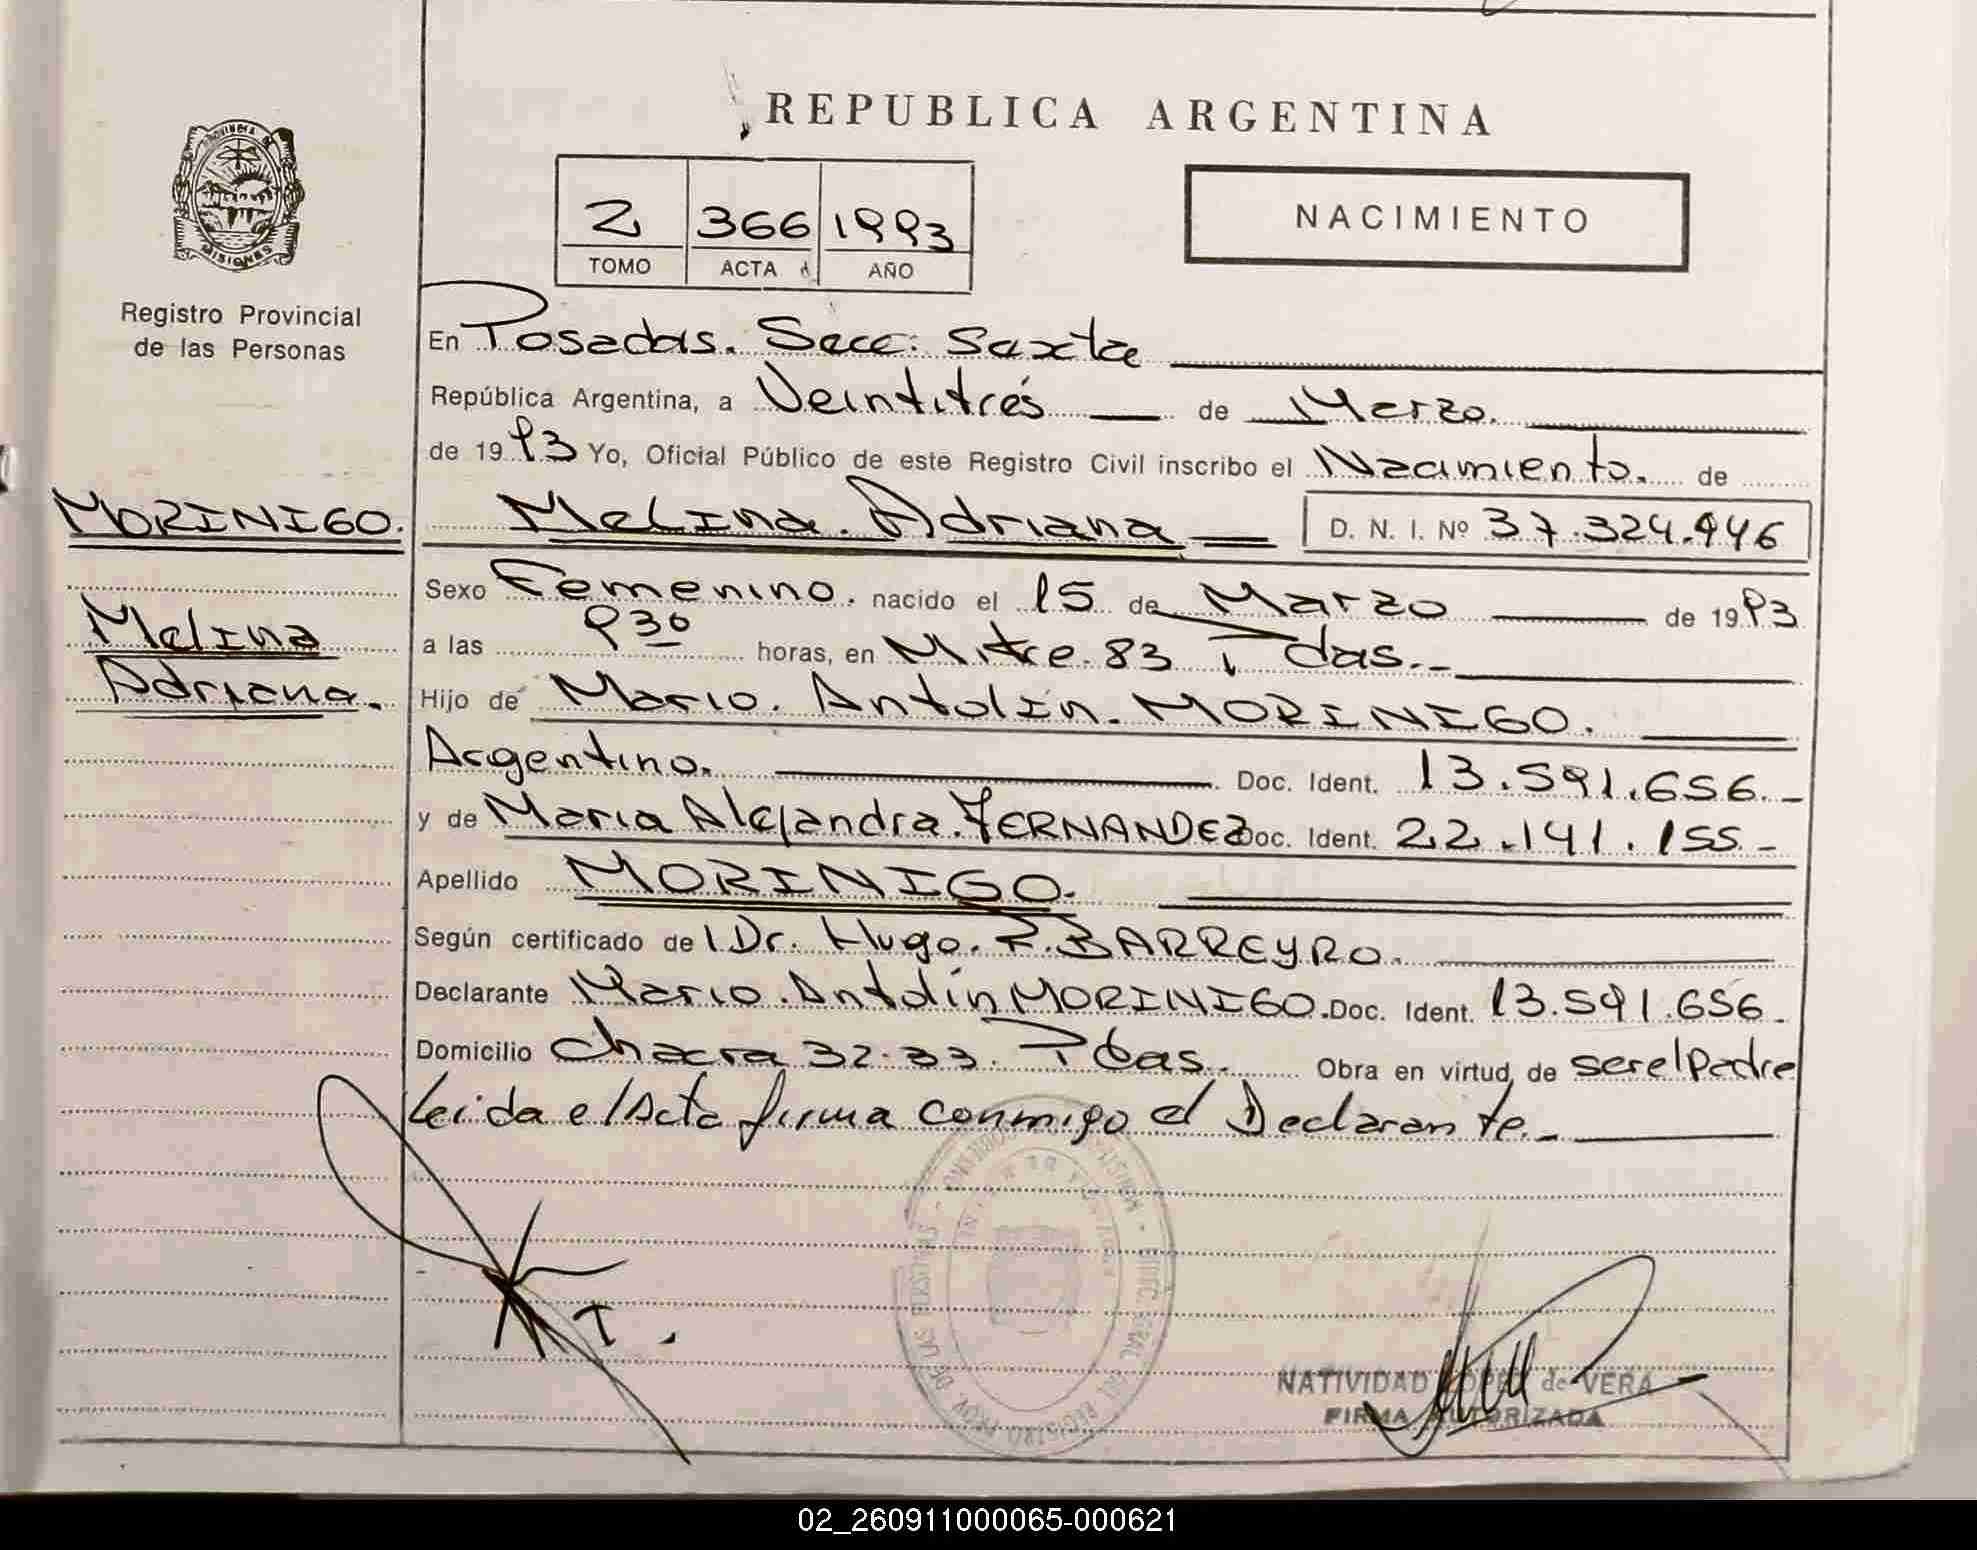 REPUBLICA ARGENTINA
2 366 1993
TOMO ACTA AÑO
NACIMIENTO
PROVINCIA DE
MISIONES
Registro Provincial
de las Personas
En Posadas. Secc: Sexta
República Argentina, a Veintitrés de Marzo.
de 1993 Yo, Oficial Público de este Registro Civil inscribo el Nacimiento. de
MORINIGO.
Melina. Adriana D. N. I. Nº 37.324.446
Sexo Femenino. nacido el 15 de Marzo de 1993
Melina
Adriana.
a las 9 30 horas, en Mitre 83 Pdas.
Hijo de Mario. Antolín. MORINIGO.
Argentino. Doc. Ident. 13.591.656.
y de Maria Alejandra. FERNANDEZ Doc. Ident. 22.141.155.
Apellido MORINIGO.
Según certificado del Dr. Hugo. R. BARREYRO.
Declarante Mario. Antolín MORINIGO. Doc. Ident. 13.591.656.
Domicilio Chacra 32-33. Pdas. Obra en virtud de ser el Padre
Leida el Acta firma conmigo el Declarante.
NATIVIDAD LOPEZ de VERA
FIRMA AUTORIZADA
02_260911000065-000621